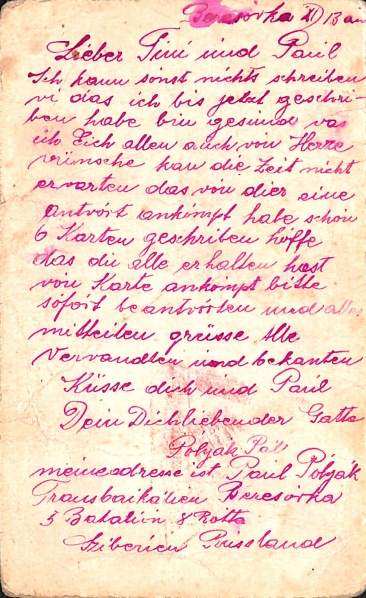 Beresovka XI 13 an
Lieber Tini und Paul
Ich kann sonst nichts schreiben
vi das ich bis jetzt geschri-
ben habe bin gesund vas
ich Eich allen auch von Herze
vünsche kan die Zeit nicht
ervarten das von dier eine
antvort ankompt habe schon
6 Karten geschriben hoffe
das du alle erhalten hast
von Karte ankompt bitte
sofort beantvorten und alles
mitteilen grüsse Alle
Vervandten und bekanten
Küsse dich und Paul
Dein Dichliebender Gatte
Polyák Pál
meine adresse ist Paul Polyák
Transbaikalien Beresovka
5 Batalion 8 Rotte
Sziberien Russland